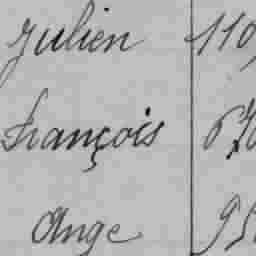 Julien 110,
François 6,70
Ange 95